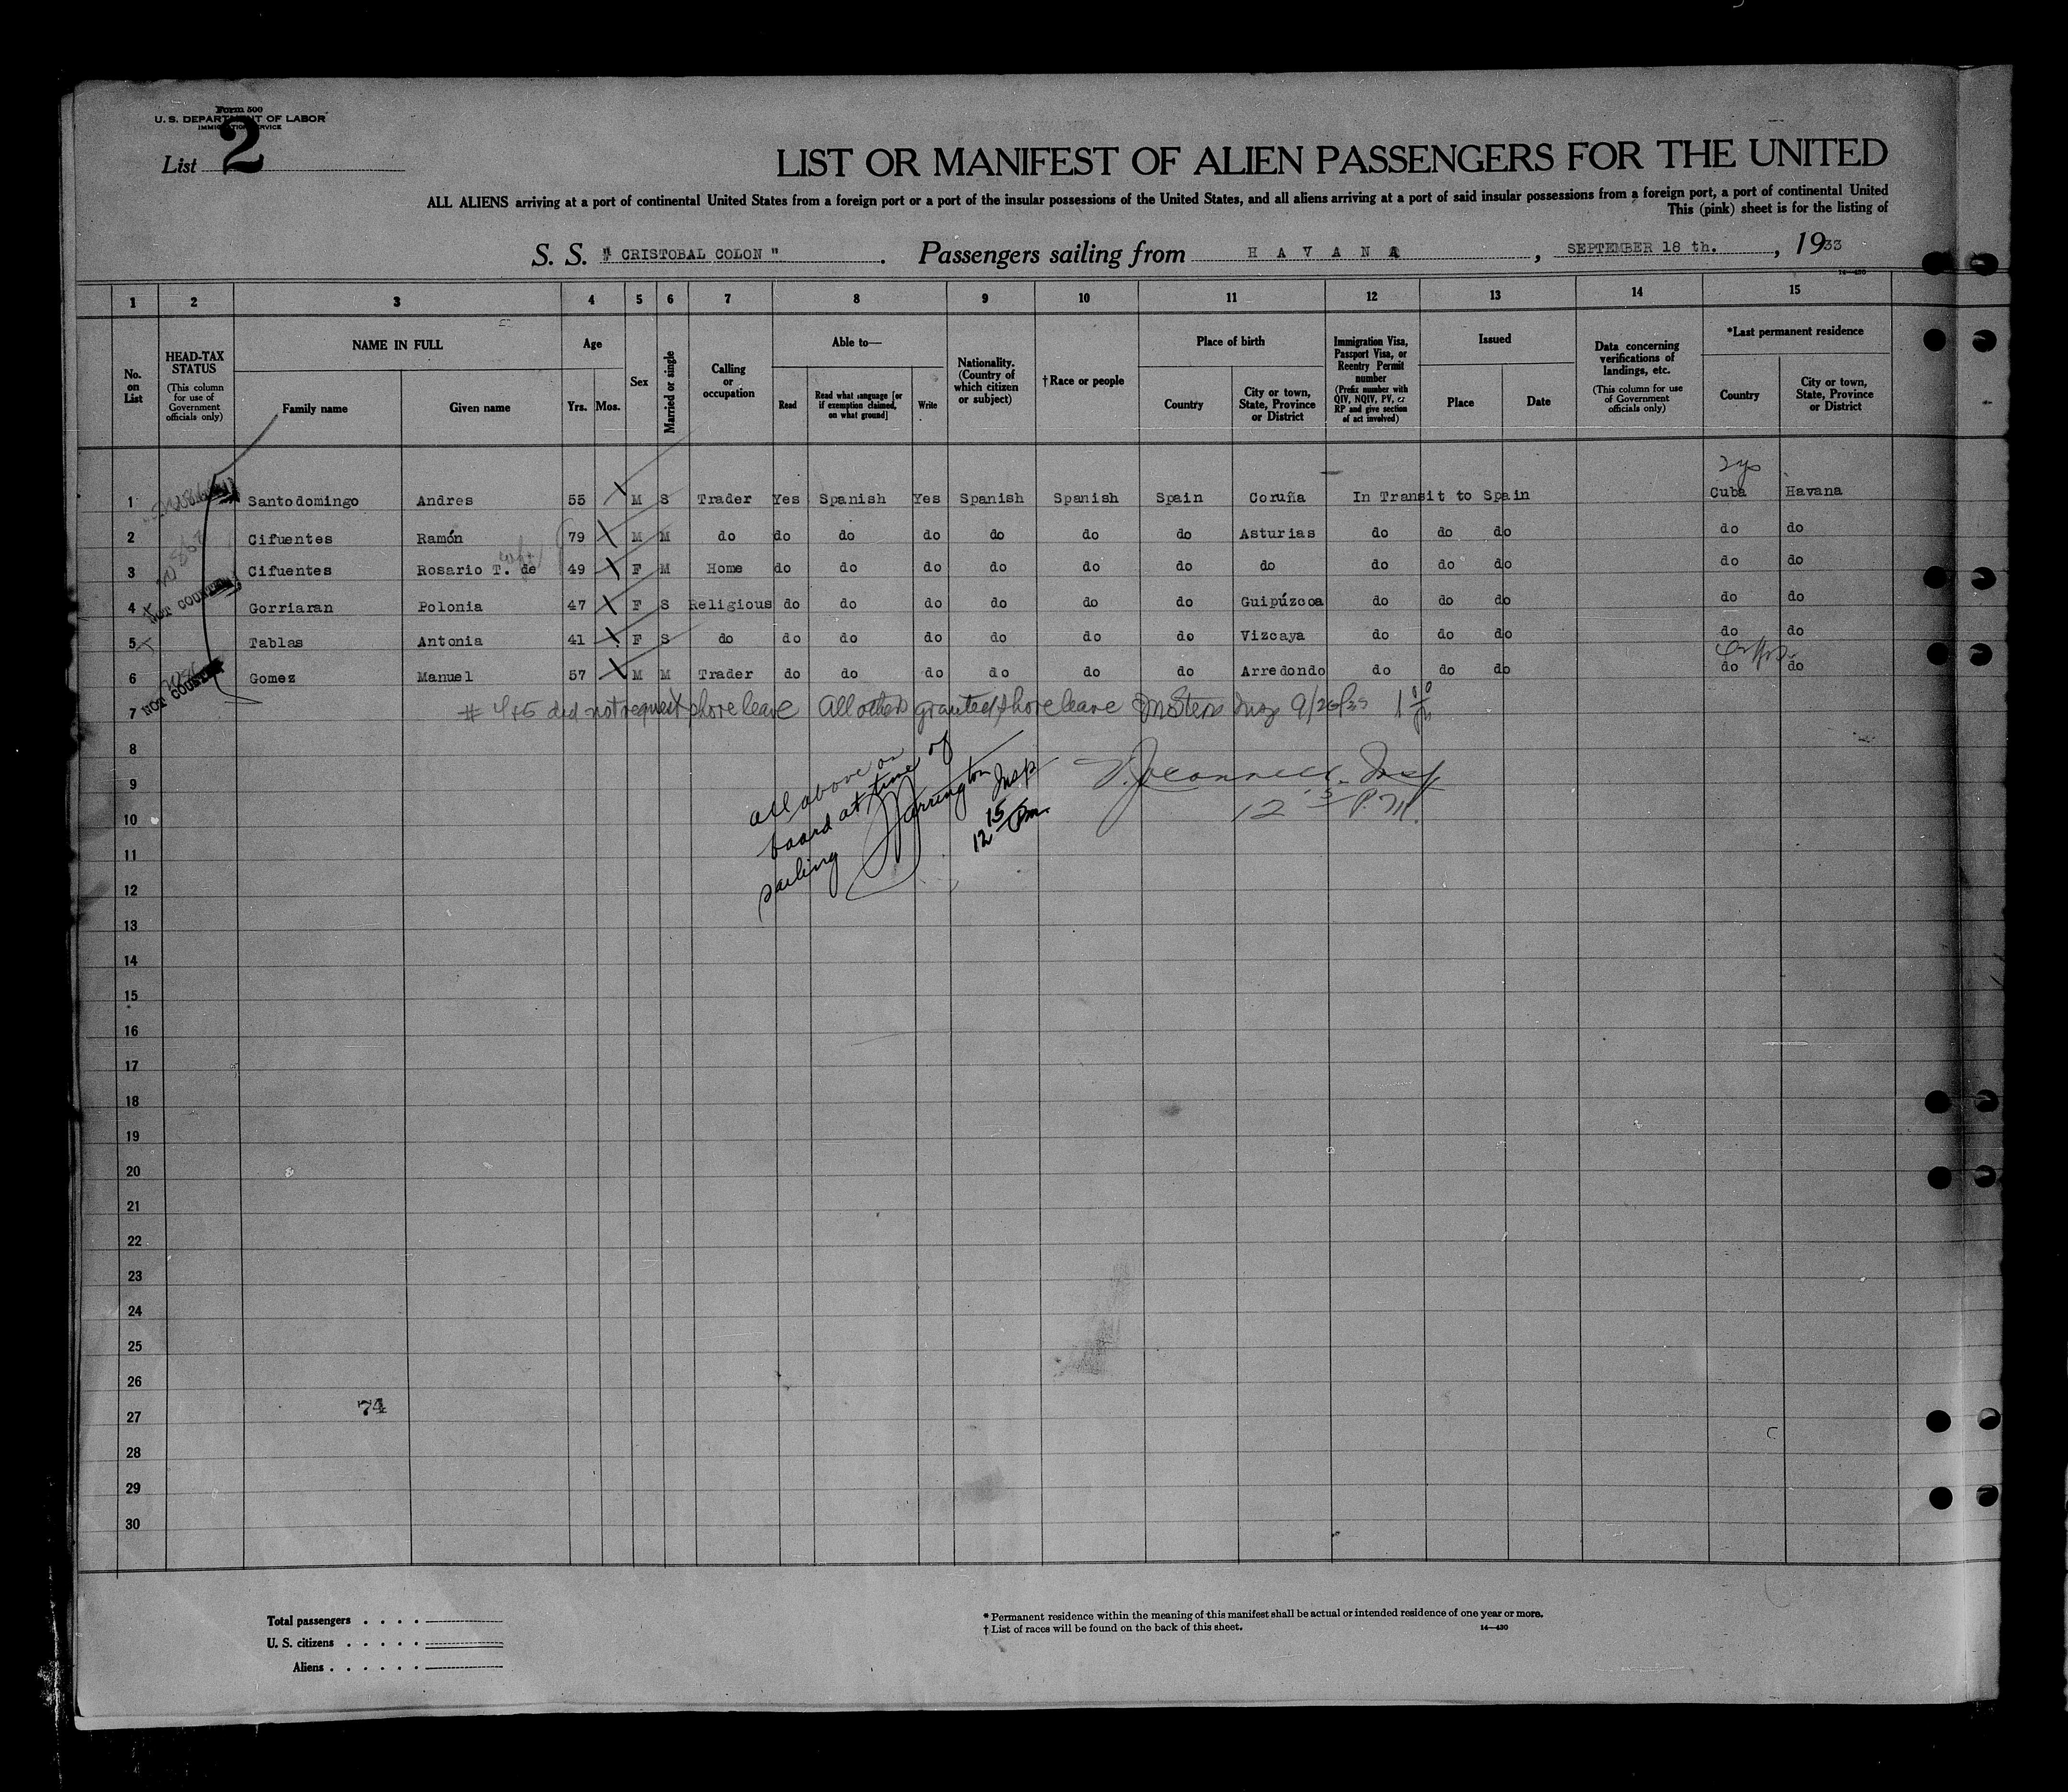 Form 500
U. S. DEPARTMENT OF LABOR
IMMIGRATION SERVICE
List 2
LIST OR MANIFEST OF ALIEN PASSENGERS FOR THE UNITED
ALL ALIENS arriving at a port of continental United States from a foreign port or a port of the insular possessions of the United States, and all aliens arriving at a port of said insular possessions from a foreign port, a port of continental United
This (pink) sheet is for the listing of
S. S. " CRISTOBAL COLON " . Passengers sailing from H A V A N A , SEPTEMBER 18 th. , 1933
14—430
1 2 3 4 5 6 7 8 9 10 11 12 13 14 15
No. on List
HEAD-TAX STATUS (This column for use of Government officials only)
NAME IN FULL
Family name Given name
Age
Yrs. Mos.
Sex
Married or single
Calling or occupation
Able to—
Read Read what language [or if exemption claimed, on what ground] Write
Nationality. (Country of which citizen or subject)
†Race or people
Place of birth
Country City or town, State, Province or District
Immigration Visa, Passport Visa, or Reentry Permit number (Prefix number with QIV, NQIV, PV, or RP and give section of act involved)
Issued
Place Date
Data concerning verifications of landings, etc. (This column for use of Government officials only)
*Last permanent residence
Country City or town, State, Province or District
1 Santodomingo Andres 55 M S Trader Yes Spanish Yes Spanish Spanish Spain Coruña In Transit to Spain Cuba Havana
2 Cifuentes Ramón 79 M M do do do do do do do Asturias do do do do do
3 Cifuentes Rosario T. de 49 F M Home do do do do do do do do do do do do
4 Gorriaran Polonia 47 F S Religious do do do do do do Guipúzcoa do do do do do
NOT COUNTED
5 Tablas Antonia 41 F S do do do do do do do Vizcaya do do do do do
6 Gomez Manuel 57 M M Trader do do do do do do Arredondo do do do do do
NOT COUNTED
7 # 4+5 did not request shore leave All others granted shore leave Insp 9/20/33
8
9
10
11
12
all above on
board at time of
sailing Harrington Insp
12 15 Pm
Insp
12 15 P.M.
13
14
15
16
17
18
19
20
21
22
23
24
25
26
27
74
28
29
30
Total passengers . . . .
U. S. citizens . . . . .
Aliens . . . . . .
* Permanent residence within the meaning of this manifest shall be actual or intended residence of one year or more.
† List of races will be found on the back of this sheet.
14—430